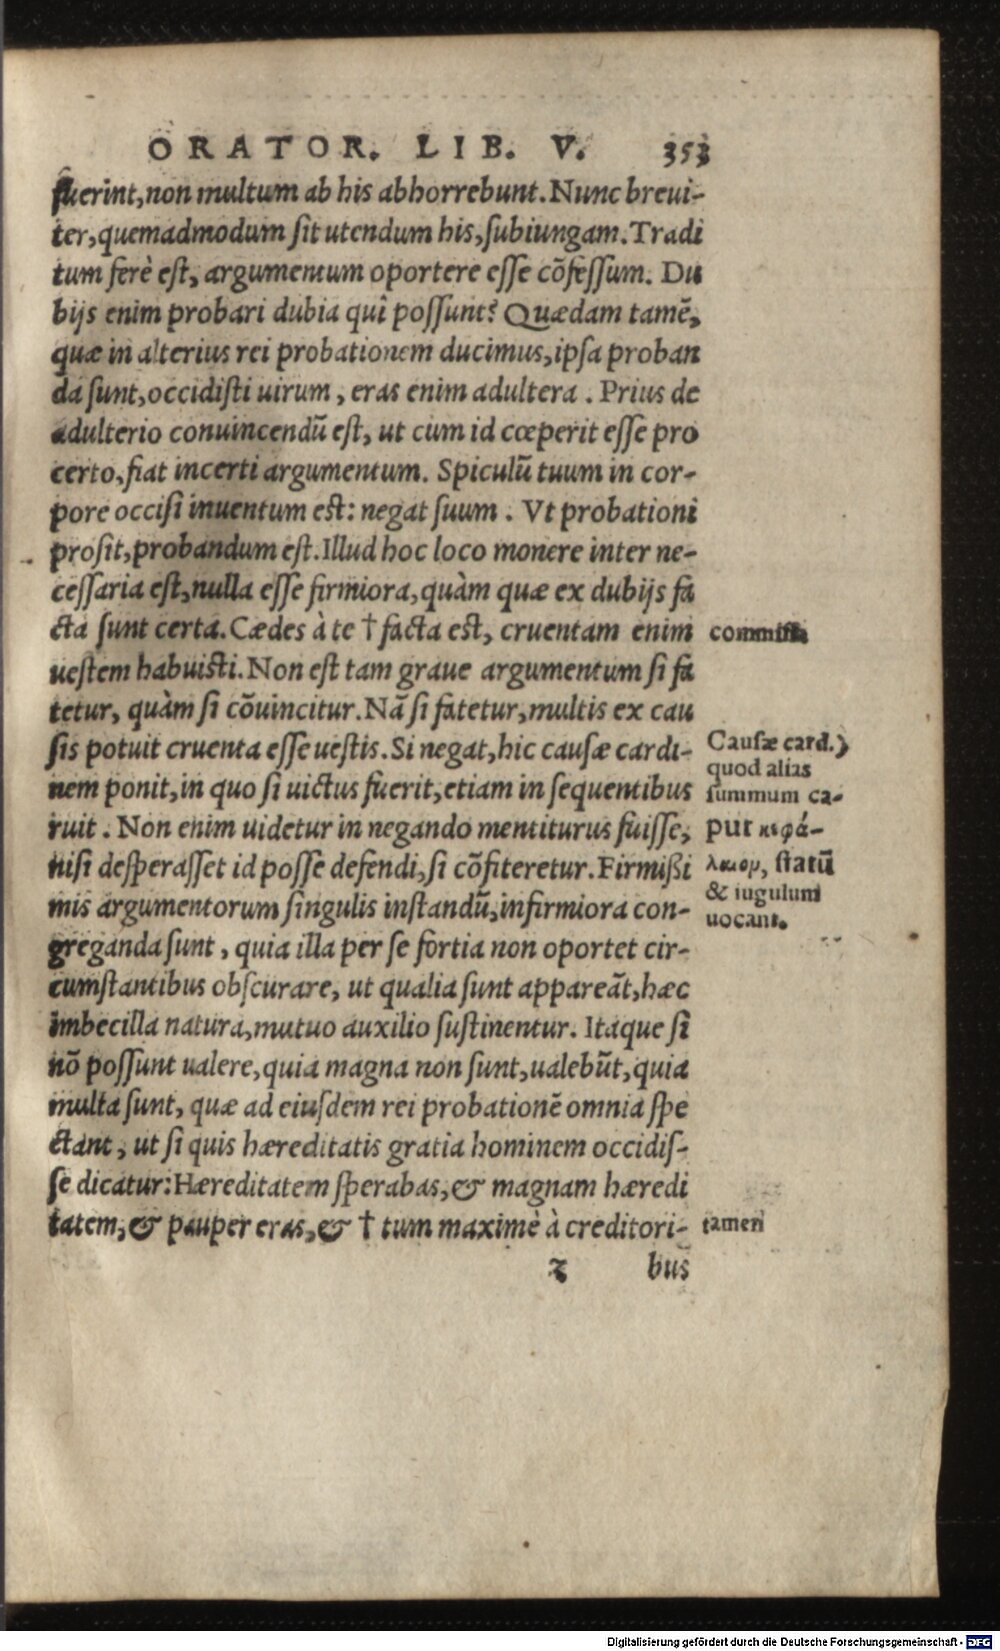 ORATOR. LIB. V. 353
fuerint, non multum ab his abhorrebunt. Nunc brevi-
ter, quemadmodum sit utendum his, subiungam. Tradi
tum ferè est, argumentum oportere esse cõfessum. Du
bijs enim probari dubia quî possunt? Quædam tamẽ,
quæ in alterius rei probationem ducimus, ipsa proban
da sunt, occidisti uirum, eras enim adultera. Prius de
adulterio conuincendũ est, ut cum id cœperit esse pro
certo, fiat incerti argumentum. Spiculũ tuum in cor-
pore occisi inuentum est: negat suum. Vt probationi
prosit, probandum est. Illud hoc loco monere inter ne-
cessaria est, nulla esse firmiora, quàm quæ ex dubijs fa
cta sunt certa. Cædes à te † facta est, cruentam enim
uestem habuisti. Non est tam graue argumentum si fa
tetur, quàm si cõuincitur. Nã si fatetur, multis ex cau
sis potuit cruenta esse uestis. Si negat, hic causæ cardi-
nem ponit, in quo si uictus fuerit, etiam in sequentibus
ruit. Non enim uidetur in negando mentiturus fuisse,
nisi desperasset id posse defendi, si cõfiteretur. Firmißi
mis argumentorum singulis instandũ, infirmiora con-
greganda sunt, quia illa per se fortia non oportet cir-
cumstantibus obscurare, ut qualia sunt appareãt, hæc
imbecilla natura, mutuo auxilio sustinentur. Itaque si
nõ possunt ualere, quia magna non sunt, ualebũt, quia
multa sunt, quæ ad eiusdem rei probationẽ omnia spe
ctant, ut si quis hæreditatis gratia hominem occidis-
se dicatur: Hæreditatem sperabas, & magnam hæredi
tatem, & pauper eras, & † tum maximè à creditori-
z bus
commissa
Causæ card.)
quod alias
summum ca-
put κεφά-
λαιον, statũ
& iugulum
uocant.
tamen
Digitalisierung gefördert durch die Deutsche Forschungsgemeinschaft - DFG